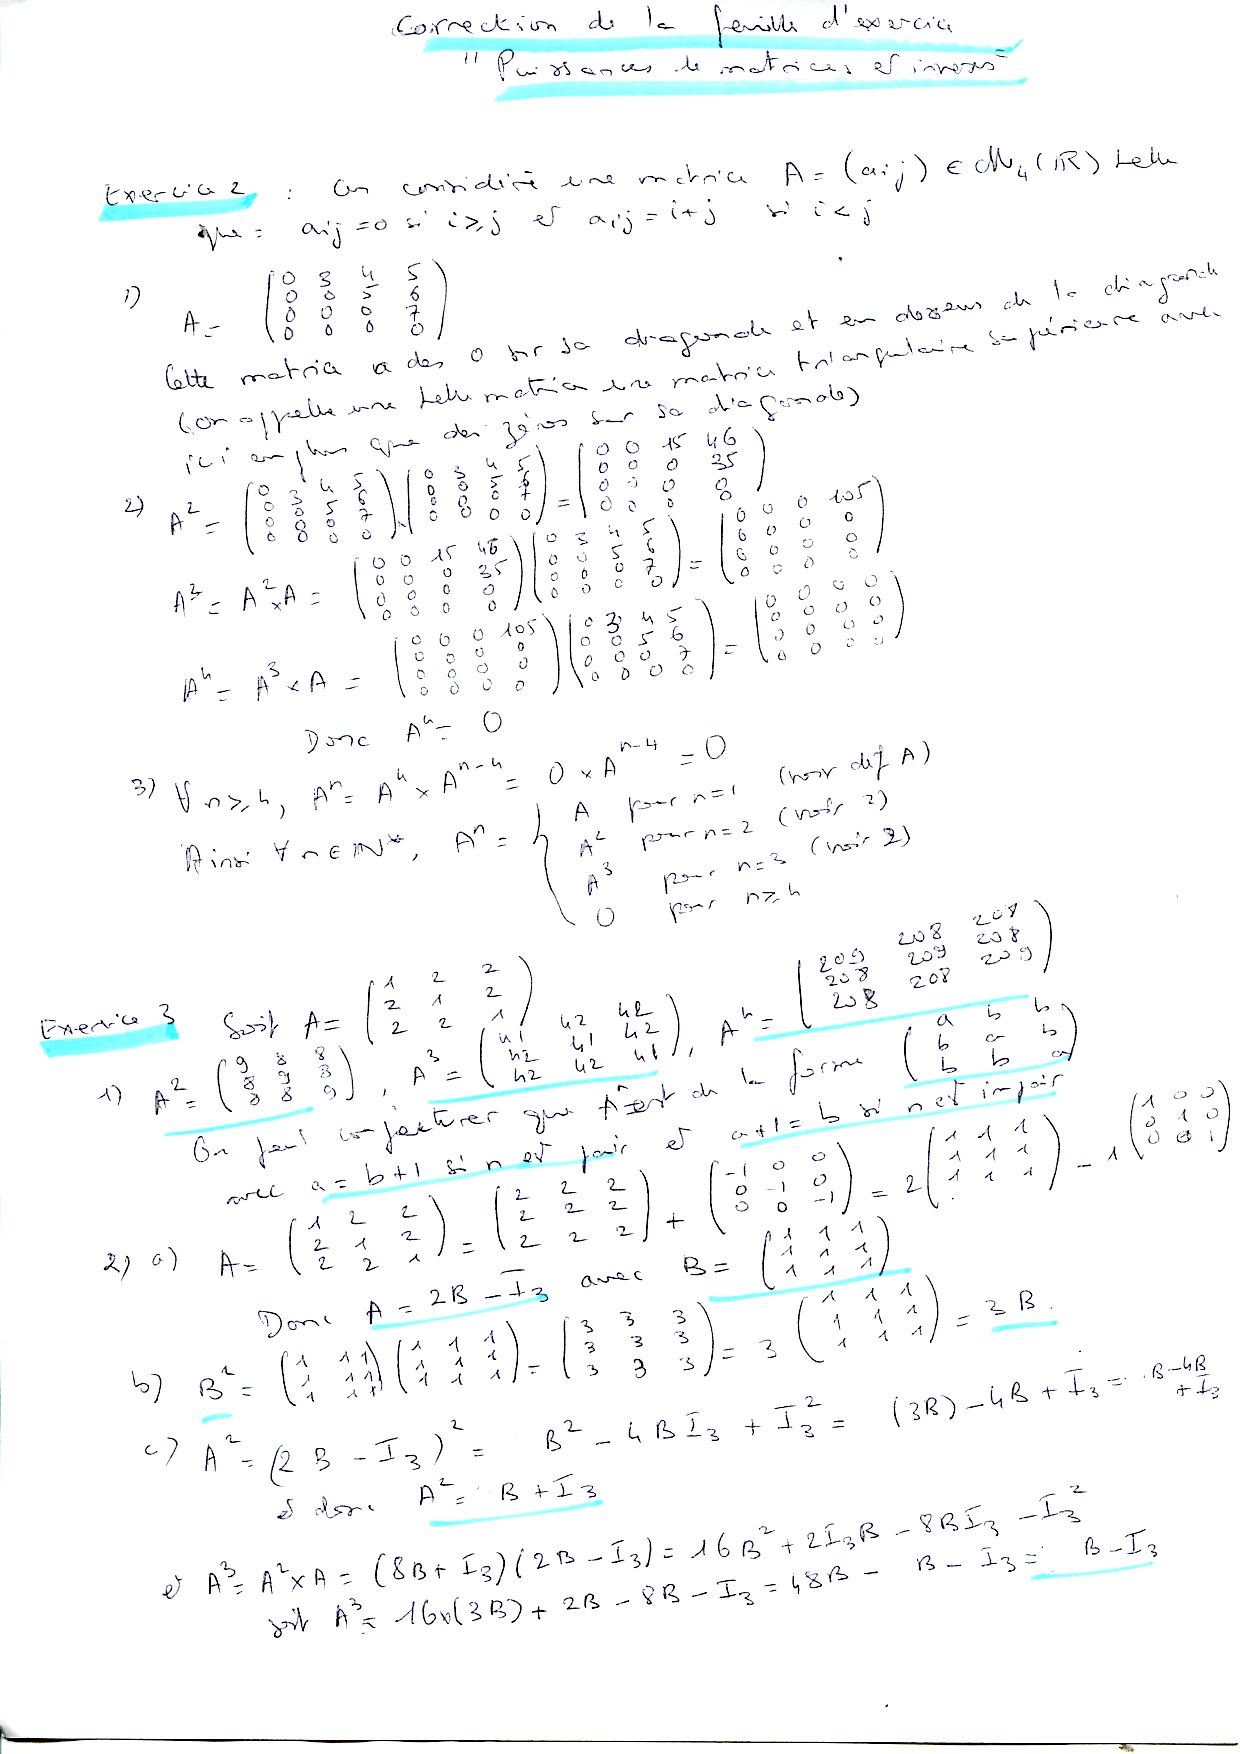 Correction de la feuille d'exercice
"Puissances de matrices et inverses"
Exercice 2 : On considère une matrice A = (aij) ∈ M₄(ℝ) telle
que : aij = 0 si i ⩾ j et aij = i+j si i < j
1) A = ( 0 3 4 5 / 0 0 5 6 / 0 0 0 7 / 0 0 0 0 )
Cette matrice a des 0 sur sa diagonale et en dessous de la diagonale
(on appelle une telle matrice une matrice triangulaire supérieure avec
ici en plus que des zéros sur sa diagonale)
2) A² = ( 0 3 4 5 / 0 0 5 6 / 0 0 0 7 / 0 0 0 0 ) . ( 0 3 4 5 / 0 0 5 6 / 0 0 0 7 / 0 0 0 0 ) = ( 0 0 15 46 / 0 0 0 35 / 0 0 0 0 / 0 0 0 0 )
A³ = A² × A = ( 0 0 15 46 / 0 0 0 35 / 0 0 0 0 / 0 0 0 0 ) ( 0 3 4 5 / 0 0 5 6 / 0 0 0 7 / 0 0 0 0 ) = ( 0 0 0 105 / 0 0 0 0 / 0 0 0 0 / 0 0 0 0 )
A⁴ = A³ × A = ( 0 0 0 105 / 0 0 0 0 / 0 0 0 0 / 0 0 0 0 ) ( 0 3 4 5 / 0 0 5 6 / 0 0 0 7 / 0 0 0 0 ) = ( 0 0 0 0 / 0 0 0 0 / 0 0 0 0 / 0 0 0 0 )
Donc A⁴ = 0
3) ∀ n ⩾ 4, Aⁿ = A⁴ × Aⁿ⁻⁴ = 0 × Aⁿ⁻⁴ = 0
Ainsi ∀ n ∈ ℕ*, Aⁿ = { A pour n=1 (voir def A)
A² pour n=2 (voir 2)
A³ pour n=3 (voir 2)
0 pour n ⩾ 4
Exercice 3 Soit A = ( 1 2 2 / 2 1 2 / 2 2 1 )
1) A² = ( 9 8 8 / 8 9 8 / 8 8 9 ), A³ = ( 41 42 42 / 42 41 42 / 42 42 41 ), A⁴ = ( 209 208 208 / 208 209 208 / 208 208 209 )
On peut conjecturer que Aⁿ est de la forme ( a b b / b a b / b b a )
avec a = b+1 si n est pair et a+1 = b si n est impair
2) a) A = ( 1 2 2 / 2 1 2 / 2 2 1 ) = ( 2 2 2 / 2 2 2 / 2 2 2 ) + ( -1 0 0 / 0 -1 0 / 0 0 -1 ) = 2 ( 1 1 1 / 1 1 1 / 1 1 1 ) - 1 ( 1 0 0 / 0 1 0 / 0 0 1 )
Donc A = 2B - I₃ avec B = ( 1 1 1 / 1 1 1 / 1 1 1 )
b) B² = ( 1 1 1 / 1 1 1 / 1 1 1 ) ( 1 1 1 / 1 1 1 / 1 1 1 ) = ( 3 3 3 / 3 3 3 / 3 3 3 ) = 3 ( 1 1 1 / 1 1 1 / 1 1 1 ) = 3B.
c) A² = (2B - I₃)² = B² - 4BI₃ + I₃² = (3B) - 4B + I₃ = B - 4B + I₃
et donc A² = B + I₃
et A³ = A² × A = (8B + I₃)(2B - I₃) = 16B² + 2I₃B - 8BI₃ - I₃²
soit A³ = 16×(3B) + 2B - 8B - I₃ = 48B - B - I₃ = B - I₃